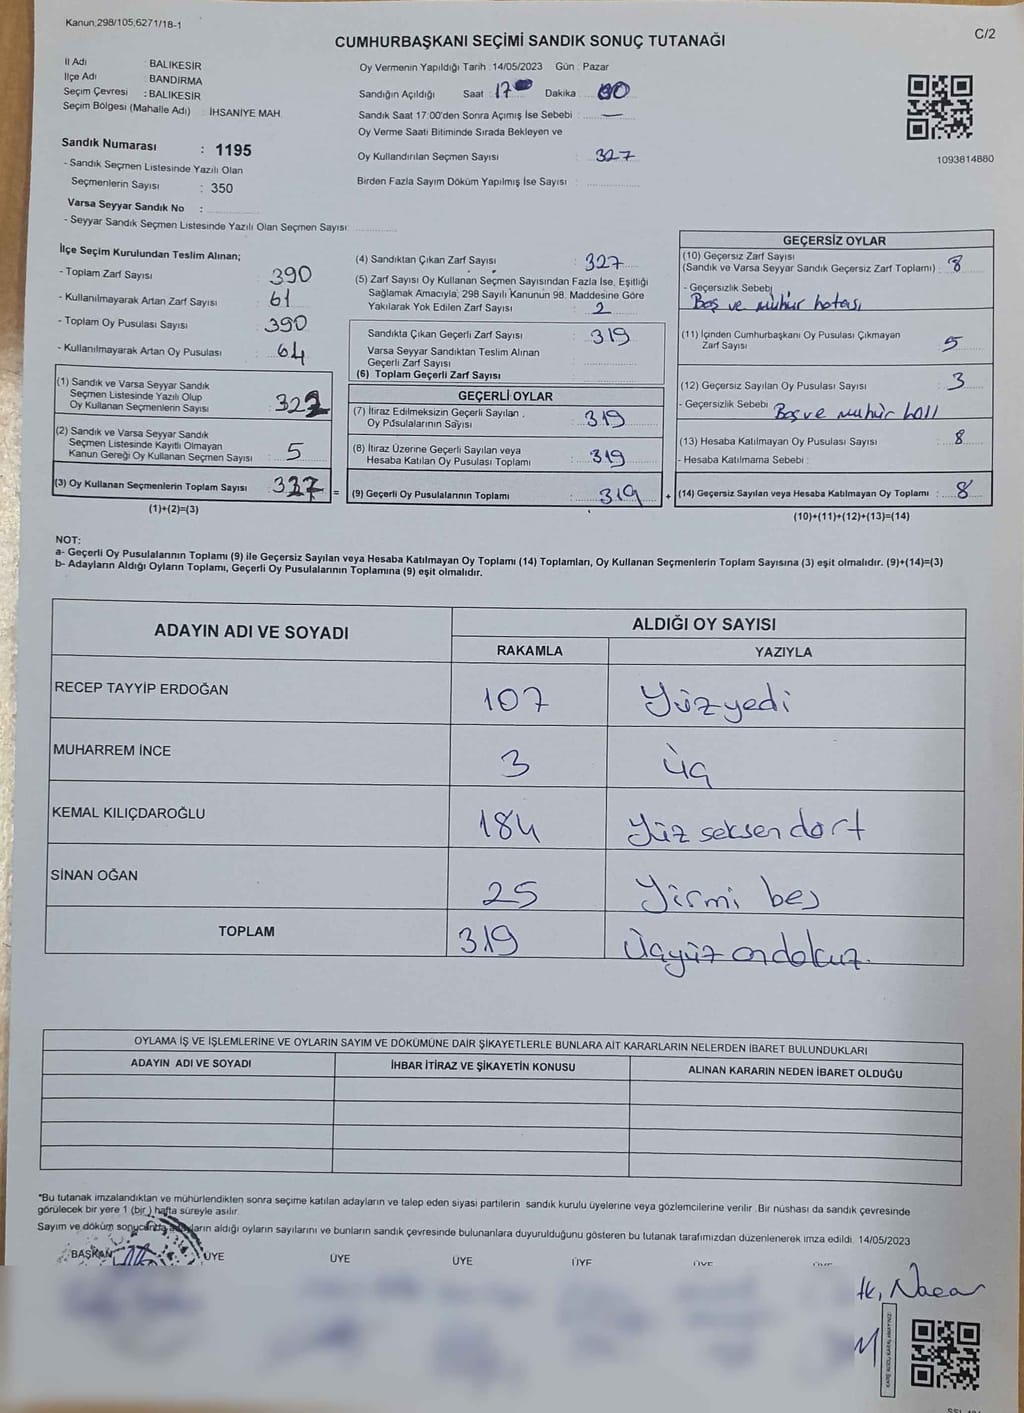 Kanun:298/105,6271/18-1
C/2
CUMHURBAŞKANI SEÇİMİ SANDIK SONUÇ TUTANAĞI
İl Adı : BALIKESİR
İlçe Adı : BANDIRMA
Seçim Çevresi : BALIKESİR
Seçim Bölgesi (Mahalle Adı) : İHSANİYE MAH.
Sandık Numarası : 1195
- Sandık Seçmen Listesinde Yazılı Olan
Seçmenlerin Sayısı : 350
Varsa Seyyar Sandık No :
- Seyyar Sandık Seçmen Listesinde Yazılı Olan Seçmen Sayısı:
Oy Vermenin Yapıldığı Tarih : 14/05/2023 Gün : Pazar
Sandığın Açıldığı Saat : 17 Dakika : 00
Sandık Saat 17:00'den Sonra Açımış İse Sebebi : —
Oy Verme Saati Bitiminde Sırada Bekleyen ve
Oy Kullandırılan Seçmen Sayısı : 327
Birden Fazla Sayım Döküm Yapılmış İse Sayısı :
1093814880
İlçe Seçim Kurulundan Teslim Alınan;
- Toplam Zarf Sayısı : 390
- Kullanılmayarak Artan Zarf Sayısı : 61
- Toplam Oy Pusulası Sayısı : 390
- Kullanılmayarak Artan Oy Pusulası : 64
(1) Sandık ve Varsa Seyyar Sandık
Seçmen Listesinde Yazılı Olup
Oy Kullanan Seçmenlerin Sayısı : 322
(2) Sandık ve Varsa Seyyar Sandık
Seçmen Listesinde Kayıtlı Olmayan
Kanun Gereği Oy Kullanan Seçmen Sayısı : 5
(3) Oy Kullanan Seçmenlerin Toplam Sayısı : 327 =
(1)+(2)=(3)
(4) Sandıktan Çıkan Zarf Sayısı : 327
(5) Zarf Sayısı Oy Kullanan Seçmen Sayısından Fazla İse, Eşitliği
Sağlamak Amacıyla, 298 Sayılı Kanunun 98. Maddesine Göre
Yakılarak Yok Edilen Zarf Sayısı : 2
Sandıkta Çıkan Geçerli Zarf Sayısı : 319
Varsa Seyyar Sandıktan Teslim Alınan
Geçerli Zarf Sayısı :
(6) Toplam Geçerli Zarf Sayısı :
GEÇERLİ OYLAR
(7) İtiraz Edilmeksizin Geçerli Sayılan
Oy Pusulalarının Sayısı : 319
(8) İtiraz Üzerine Geçerli Sayılan veya
Hesaba Katılan Oy Pusulası Toplamı : 319
(9) Geçerli Oy Pusulalarının Toplamı : 319 +
GEÇERSİZ OYLAR
(10) Geçersiz Zarf Sayısı
(Sandık ve Varsa Seyyar Sandık Geçersiz Zarf Toplamı) : 8
- Geçersizlik Sebebi :
Boş ve mühür hatası
(11) İçinden Cumhurbaşkanı Oy Pusulası Çıkmayan
Zarf Sayısı : 5
(12) Geçersiz Sayılan Oy Pusulası Sayısı : 3
- Geçersizlik Sebebi : Boş ve muhür
(13) Hesaba Katılmayan Oy Pusulası Sayısı : 8
- Hesaba Katılmama Sebebi :
(14) Geçersiz Sayılan veya Hesaba Katılmayan Oy Toplamı : 8
(10)+(11)+(12)+(13)=(14)
NOT:
a- Geçerli Oy Pusulalarının Toplamı (9) ile Geçersiz Sayılan veya Hesaba Katılmayan Oy Toplamı (14) Toplamları, Oy Kullanan Seçmenlerin Toplam Sayısına (3) eşit olmalıdır. (9)+(14)=(3)
b- Adayların Aldığı Oyların Toplamı, Geçerli Oy Pusulalarının Toplamına (9) eşit olmalıdır.
ADAYIN ADI VE SOYADI
ALDIĞI OY SAYISI
RAKAMLA YAZIYLA
RECEP TAYYİP ERDOĞAN 107 Yüzyedi
MUHARREM İNCE 3 üç
KEMAL KILIÇDAROĞLU 184 Yüz seksen dört
SİNAN OĞAN 25 Yirmi beş
TOPLAM 319 Üçyüz ondokuz.
OYLAMA İŞ VE İŞLEMLERİNE VE OYLARIN SAYIM VE DÖKÜMÜNE DAİR ŞİKAYETLERLE BUNLARA AİT KARARLARIN NELERDEN İBARET BULUNDUKLARI
ADAYIN ADI VE SOYADI İHBAR İTİRAZ VE ŞİKAYETİN KONUSU ALINAN KARARIN NEDEN İBARET OLDUĞU
"Bu tutanak imzalandıktan ve mühürlendikten sonra seçime katılan adayların ve talep eden siyasi partilerin sandık kurulu üyelerine veya gözlemcilerine verilir. Bir nüshası da sandık çevresinde
görülecek bir yere 1 (bir) hafta süreyle asılır.
Sayım ve döküm sonucunda adayların aldığı oyların sayılarını ve bunların sandık çevresinde bulunanlara duyurulduğunu gösteren bu tutanak tarafımızdan düzenlenerek imza edildi. 14/05/2023
BAŞKAN ÜYE ÜYE ÜYE ÜYE